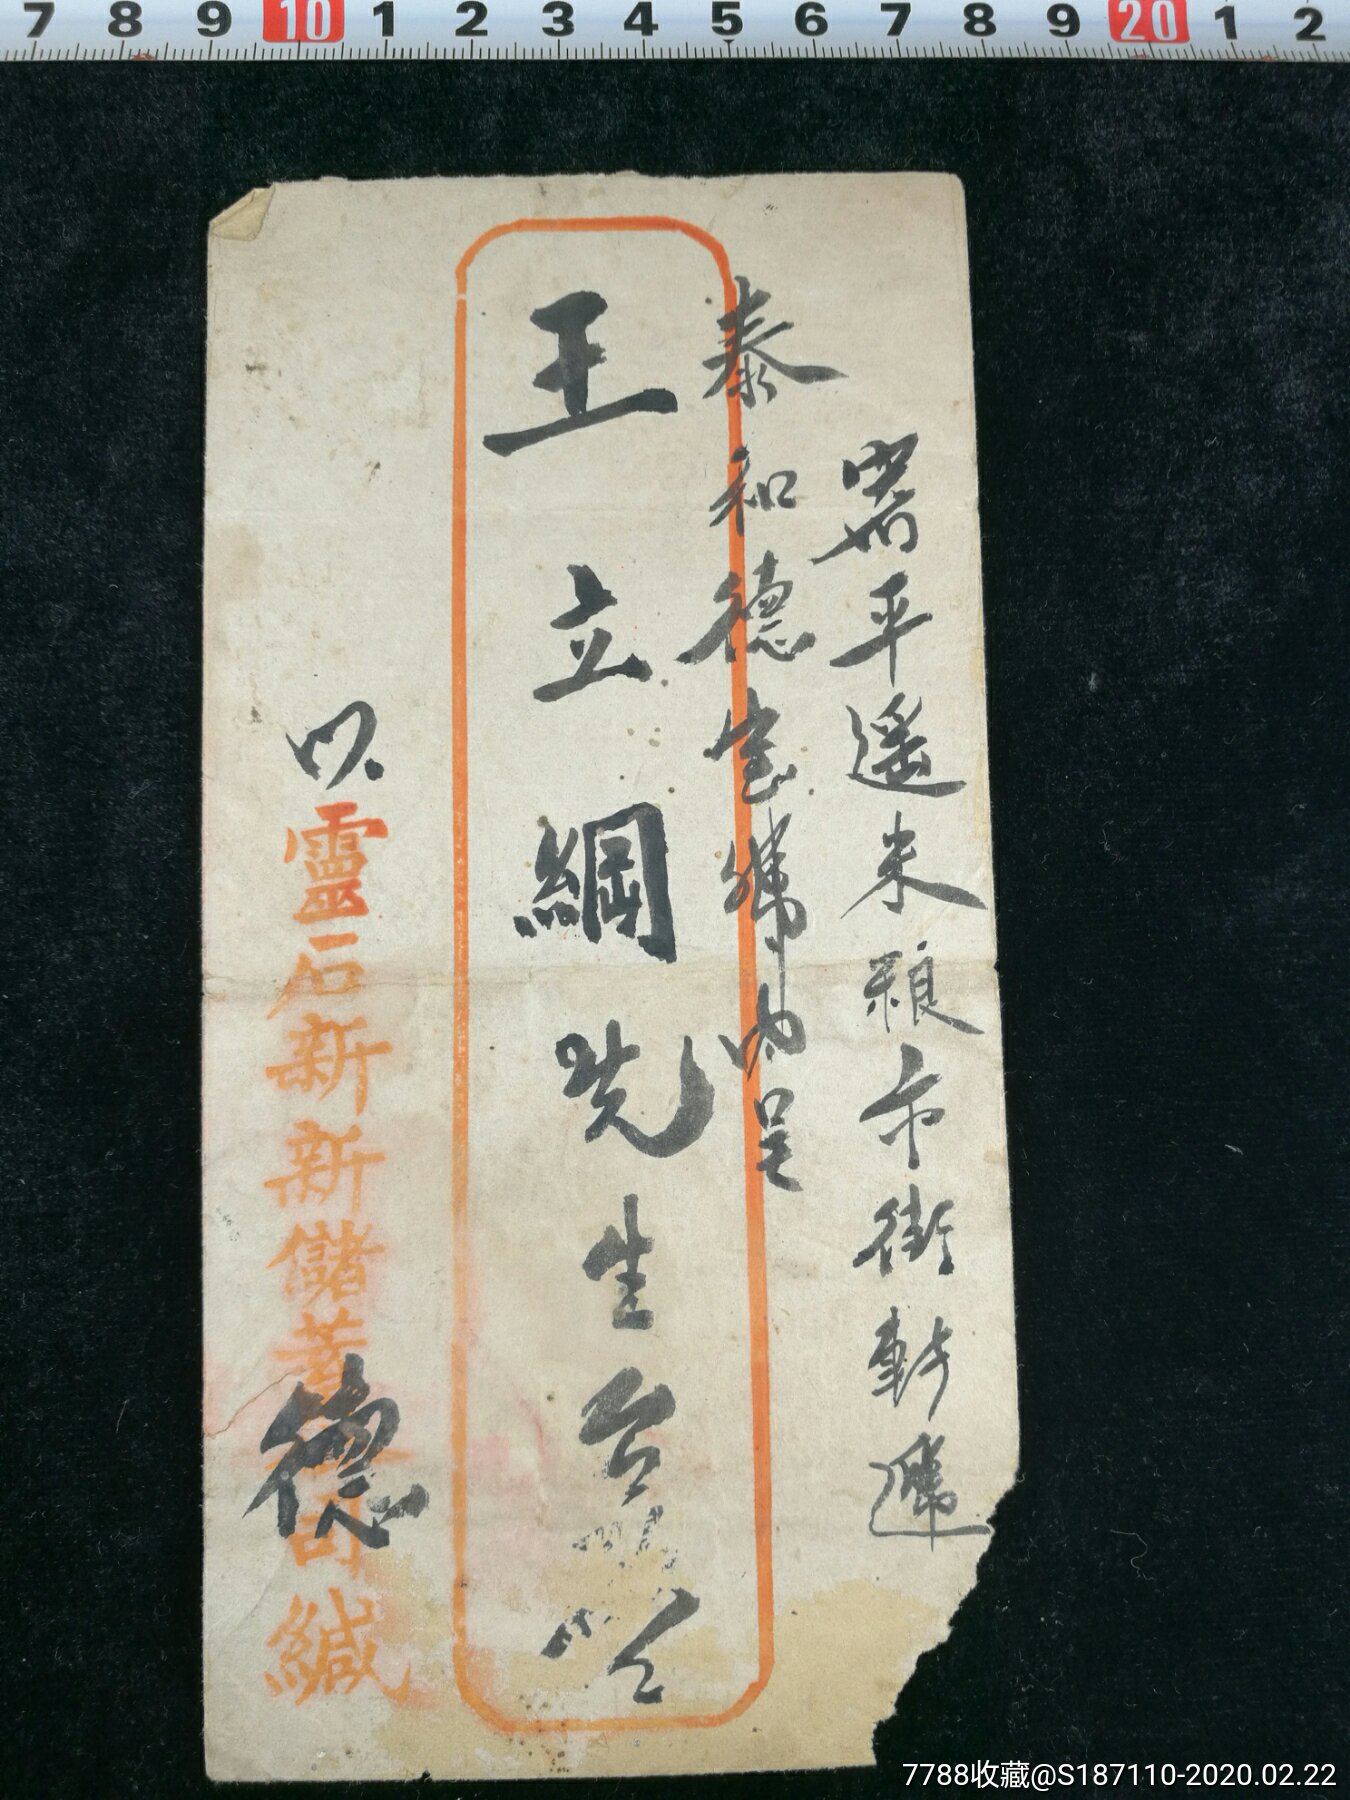 7 8 9 10 1 2 3 4 5 6 7 8 9 20 1 2
平遥米粮市街
泰和德宝号内呈
王立綱先生台
以
靈石新新儲蓄
德
緘
7788收藏@S187110-2020.02.22